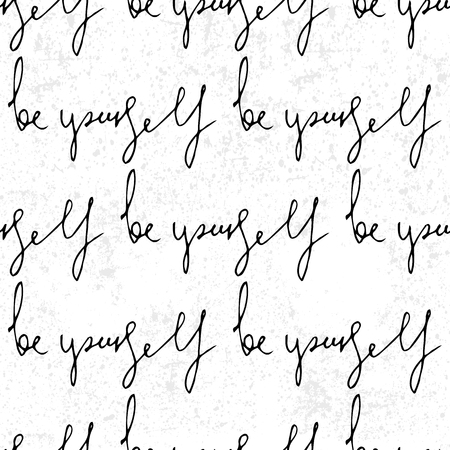 yourself be yourself be
be yourself be yourself
self be yourself be you
be yourself be yourself
self be yourself be you